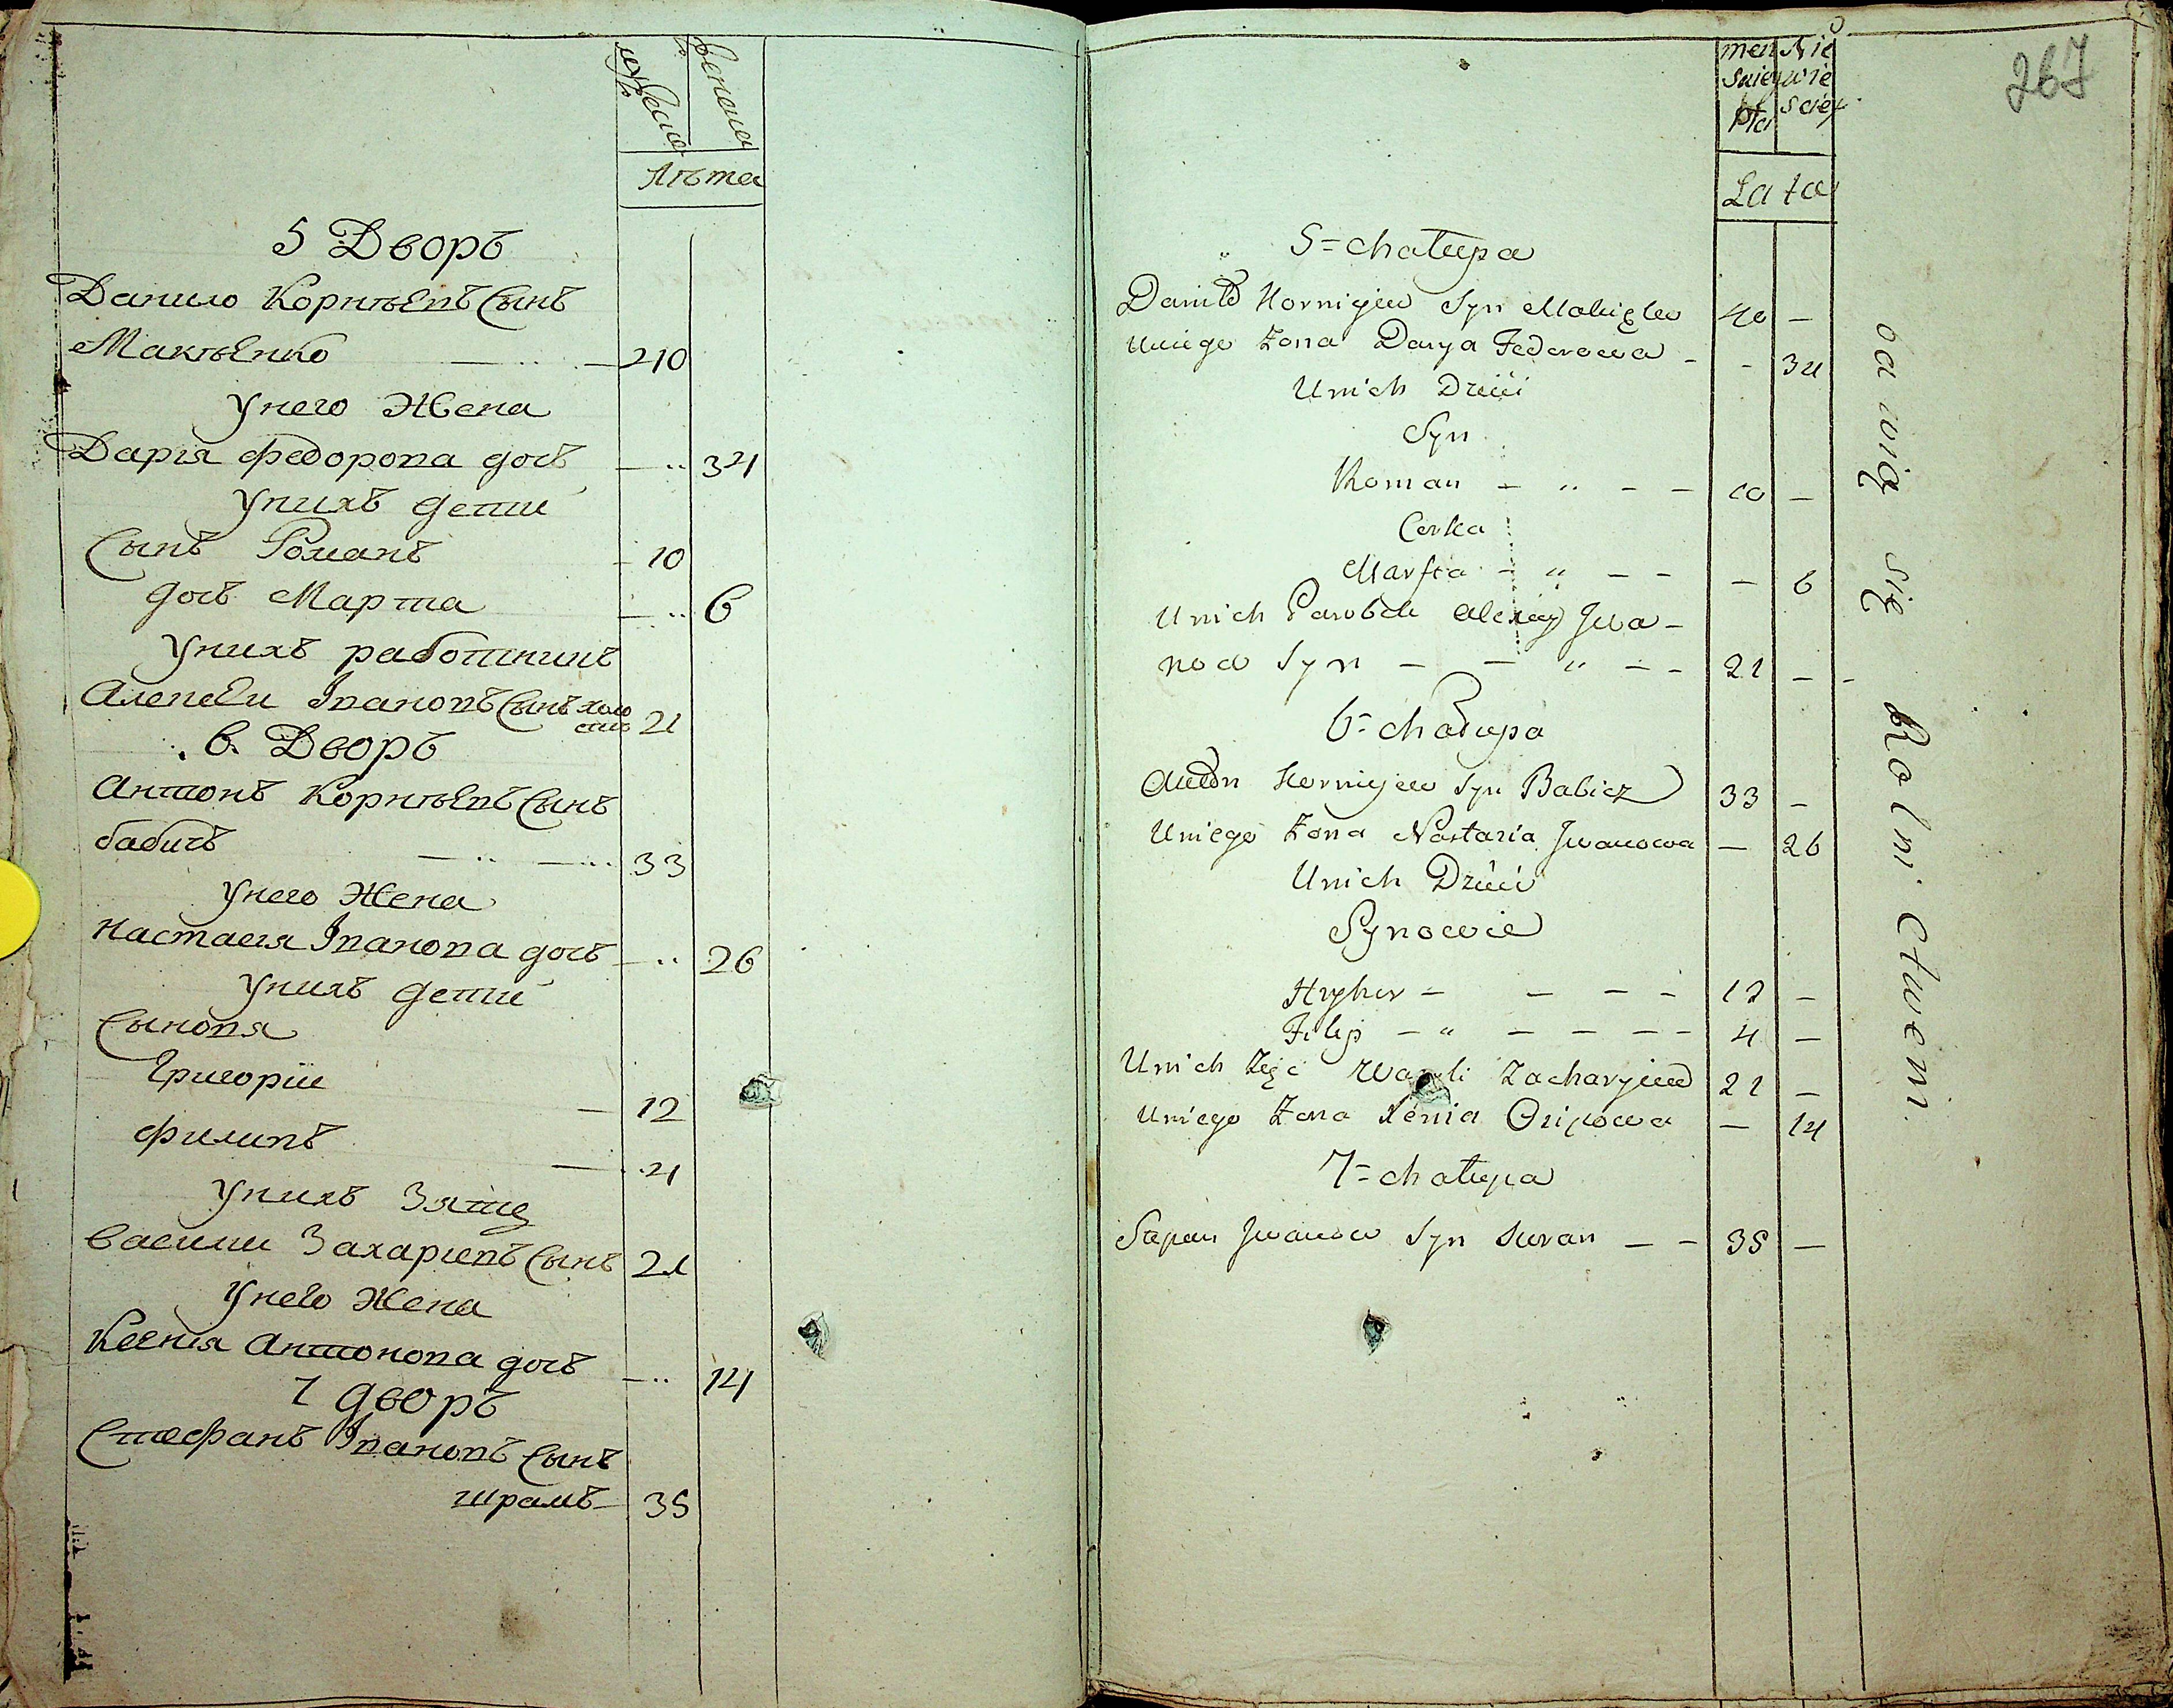 Женска
Лѣта
5 Дворъ
Данило Корнѣевъ Сынъ
Макѣенко 40
Унего Жена
Дарія Федорова дочь 34
Унихъ дети
Сынъ Романъ 10
дочь Марта 6
Унихъ работникъ
Алексеи Івановъ Сынъ холо
стъ 21
6. Дворъ
Антонъ Корнѣевъ Сынъ
бабичъ 33
Унего Жена
Настасія Іванова дочь 26
Унихъ дети
Сыновя
Григорій 12
Филипъ 4
Унихъ Зять
Василии Захариевъ Сынъ 21
Унего Жена
Ксенія Антонова дочь 14
7 дворъ
Стефанъ Івановъ Сынъ
шрамъ 35
267
Lata
5 = chałupa
Daniło Kornijew Syn 40 —
Uniego Żona Darya Fedorowa - - 34
Unich Dzieci
Syn
Roman — " — — 10 —
Corka
Marfta — " — — — 6
Unich Parobek Alexiey Iwa-
now Syn — — " — — 21 — -
6 = chałupa
Anton Kornijew Syn Babicz 33 —
Uniego Żona Nastazia Iwanowa — 26
Unich Dzieci
Synowie
Hryhor — — — — 12 —
Filip — " — — — — 4 —
Unich Zięć Wasyli Zacharyiew 21 —
Uniego Żona Xenia — 14
7 = chałupa
Stepan Iwanow Syn — — 35 —
bawią się Rolnictwem.